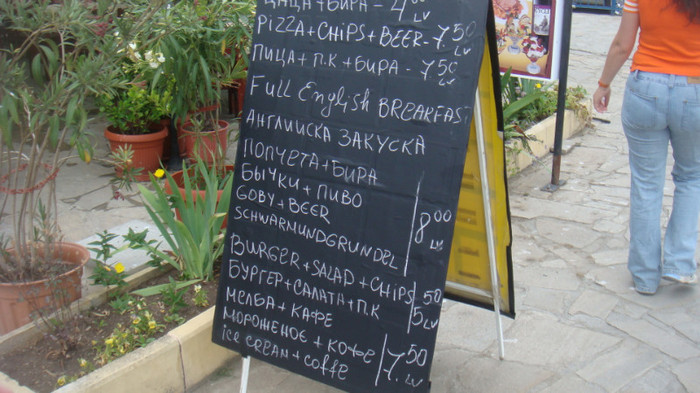 ЦАЦА + БИРА - 4.00 LV
PIZZA + CHIPS + BEER - 7.50 LV
ПИЦА + П.К + БИРА - 7.50 LV
Full English BREAKFAST
АНГЛИЙСКА ЗАКУСКА
ПОПЧЕТА + БИРА
БЫЧКИ + ПИВО
GOBY + BEER 8.00 LV
SCHWARMUNDGRUNDEL
BURGER + SALAD + CHIPS
БУРГЕР + САЛАТА + П.К 5.50 LV
МЕЛБА + КАФЕ
МОРОЖЕНОЕ + КОФЕ 7.50 LV
ice CREAM + COFFE